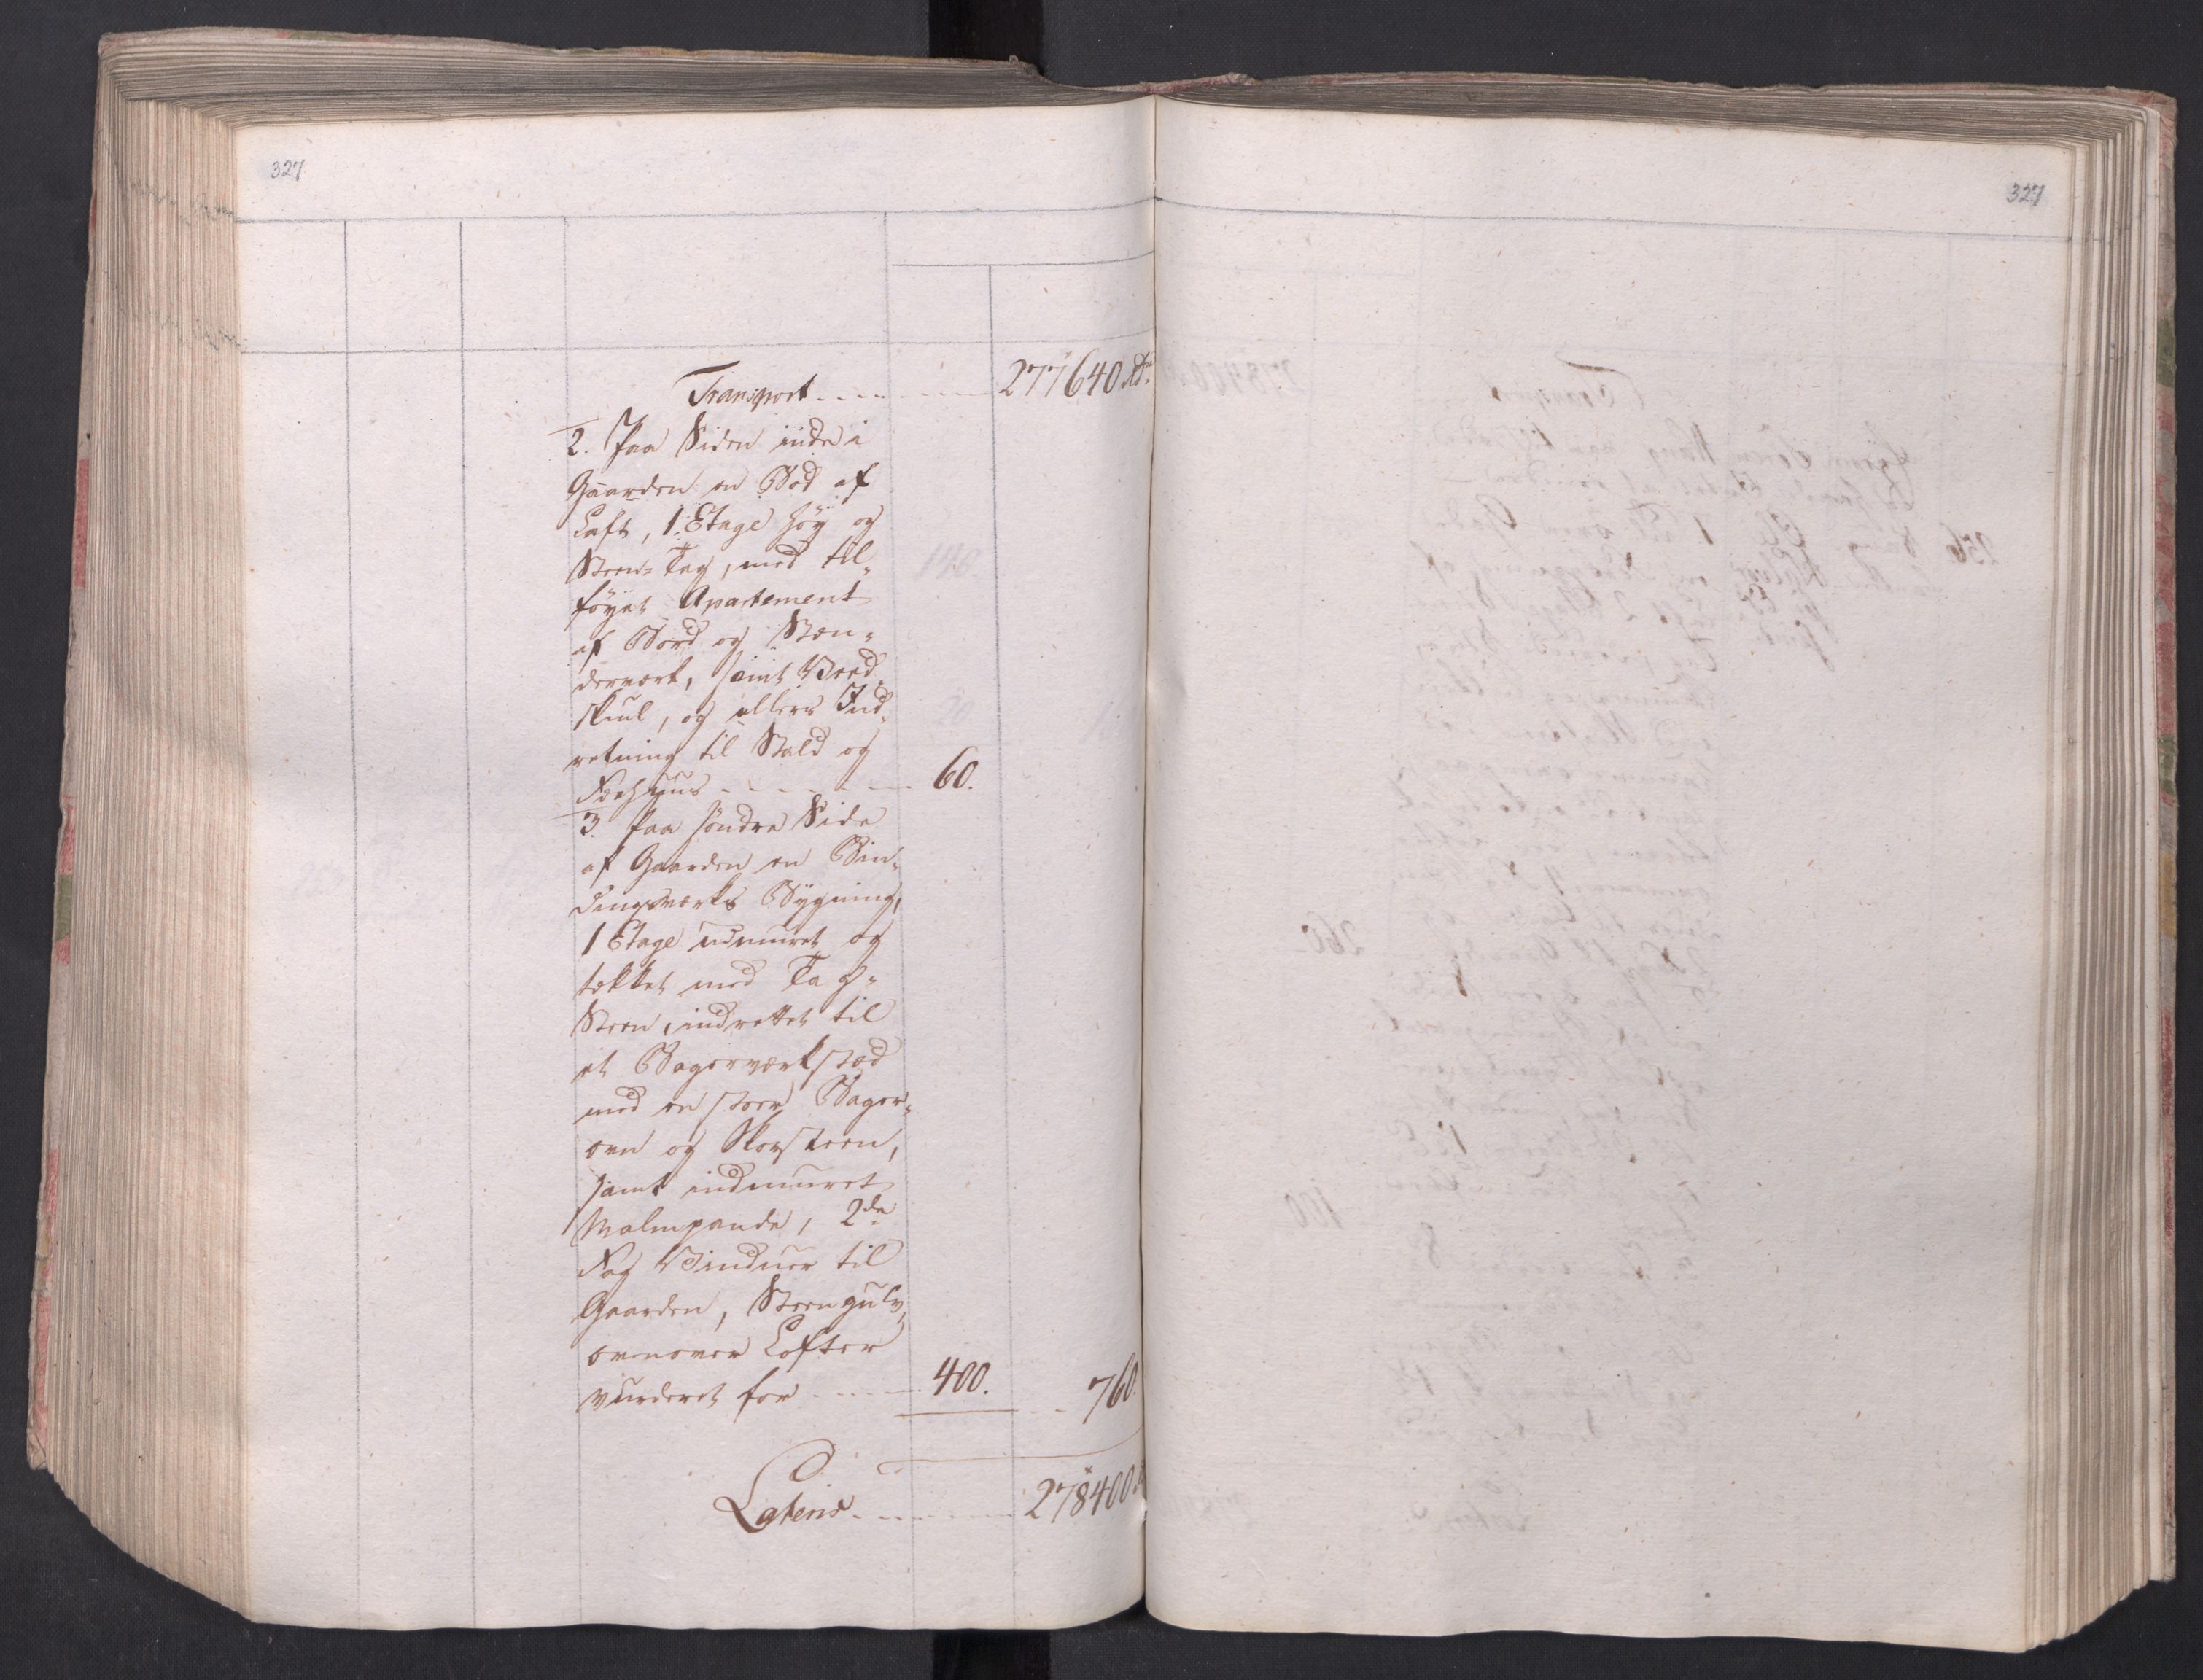 327
327
Transport - - - - - - - 277640 Rdr
2. Paa Siden inde i
Gaarden en Bod af
Laft, 1 Etage høÿ og
Steen-Tag, med til-
føÿet Apartement
af Bord og Sten-
derværk, samt Bord
skiul, og ellers Ind-
retning til Stald og
Fæehuus - - - - - - - 60.
3. paa søndre Side
af Gaarden en Bin-
dingsværks Bygning,
1 Etage udmuret og
tækket med Tag-
Steen, indrettet til
et Bagerværksted
med en stoer Bager-
ovn og Skorsteen,
samt indmuuret
Malmpande, 2de
Fag Vinduer til
Gaarden, Steengulv,
ovenover Lofter
vurderet for - - - - - 400. - - 760.
Lateris - - - - - - - 278400